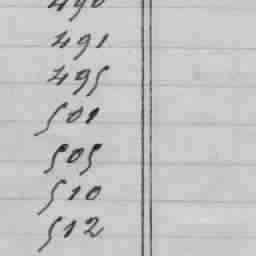 490
491
495
501
505
510
512